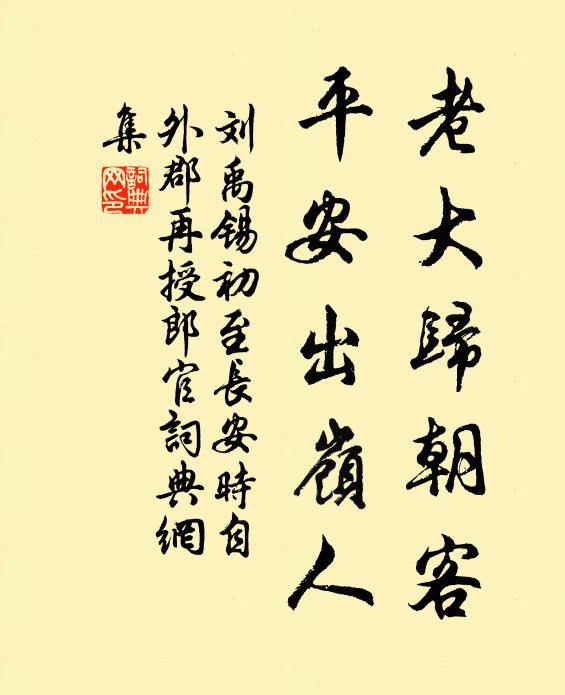 老大歸朝客
平安出嶺人
刘禹锡初至長安時自
外郡再授郎官詞典網
集
詞典
网印